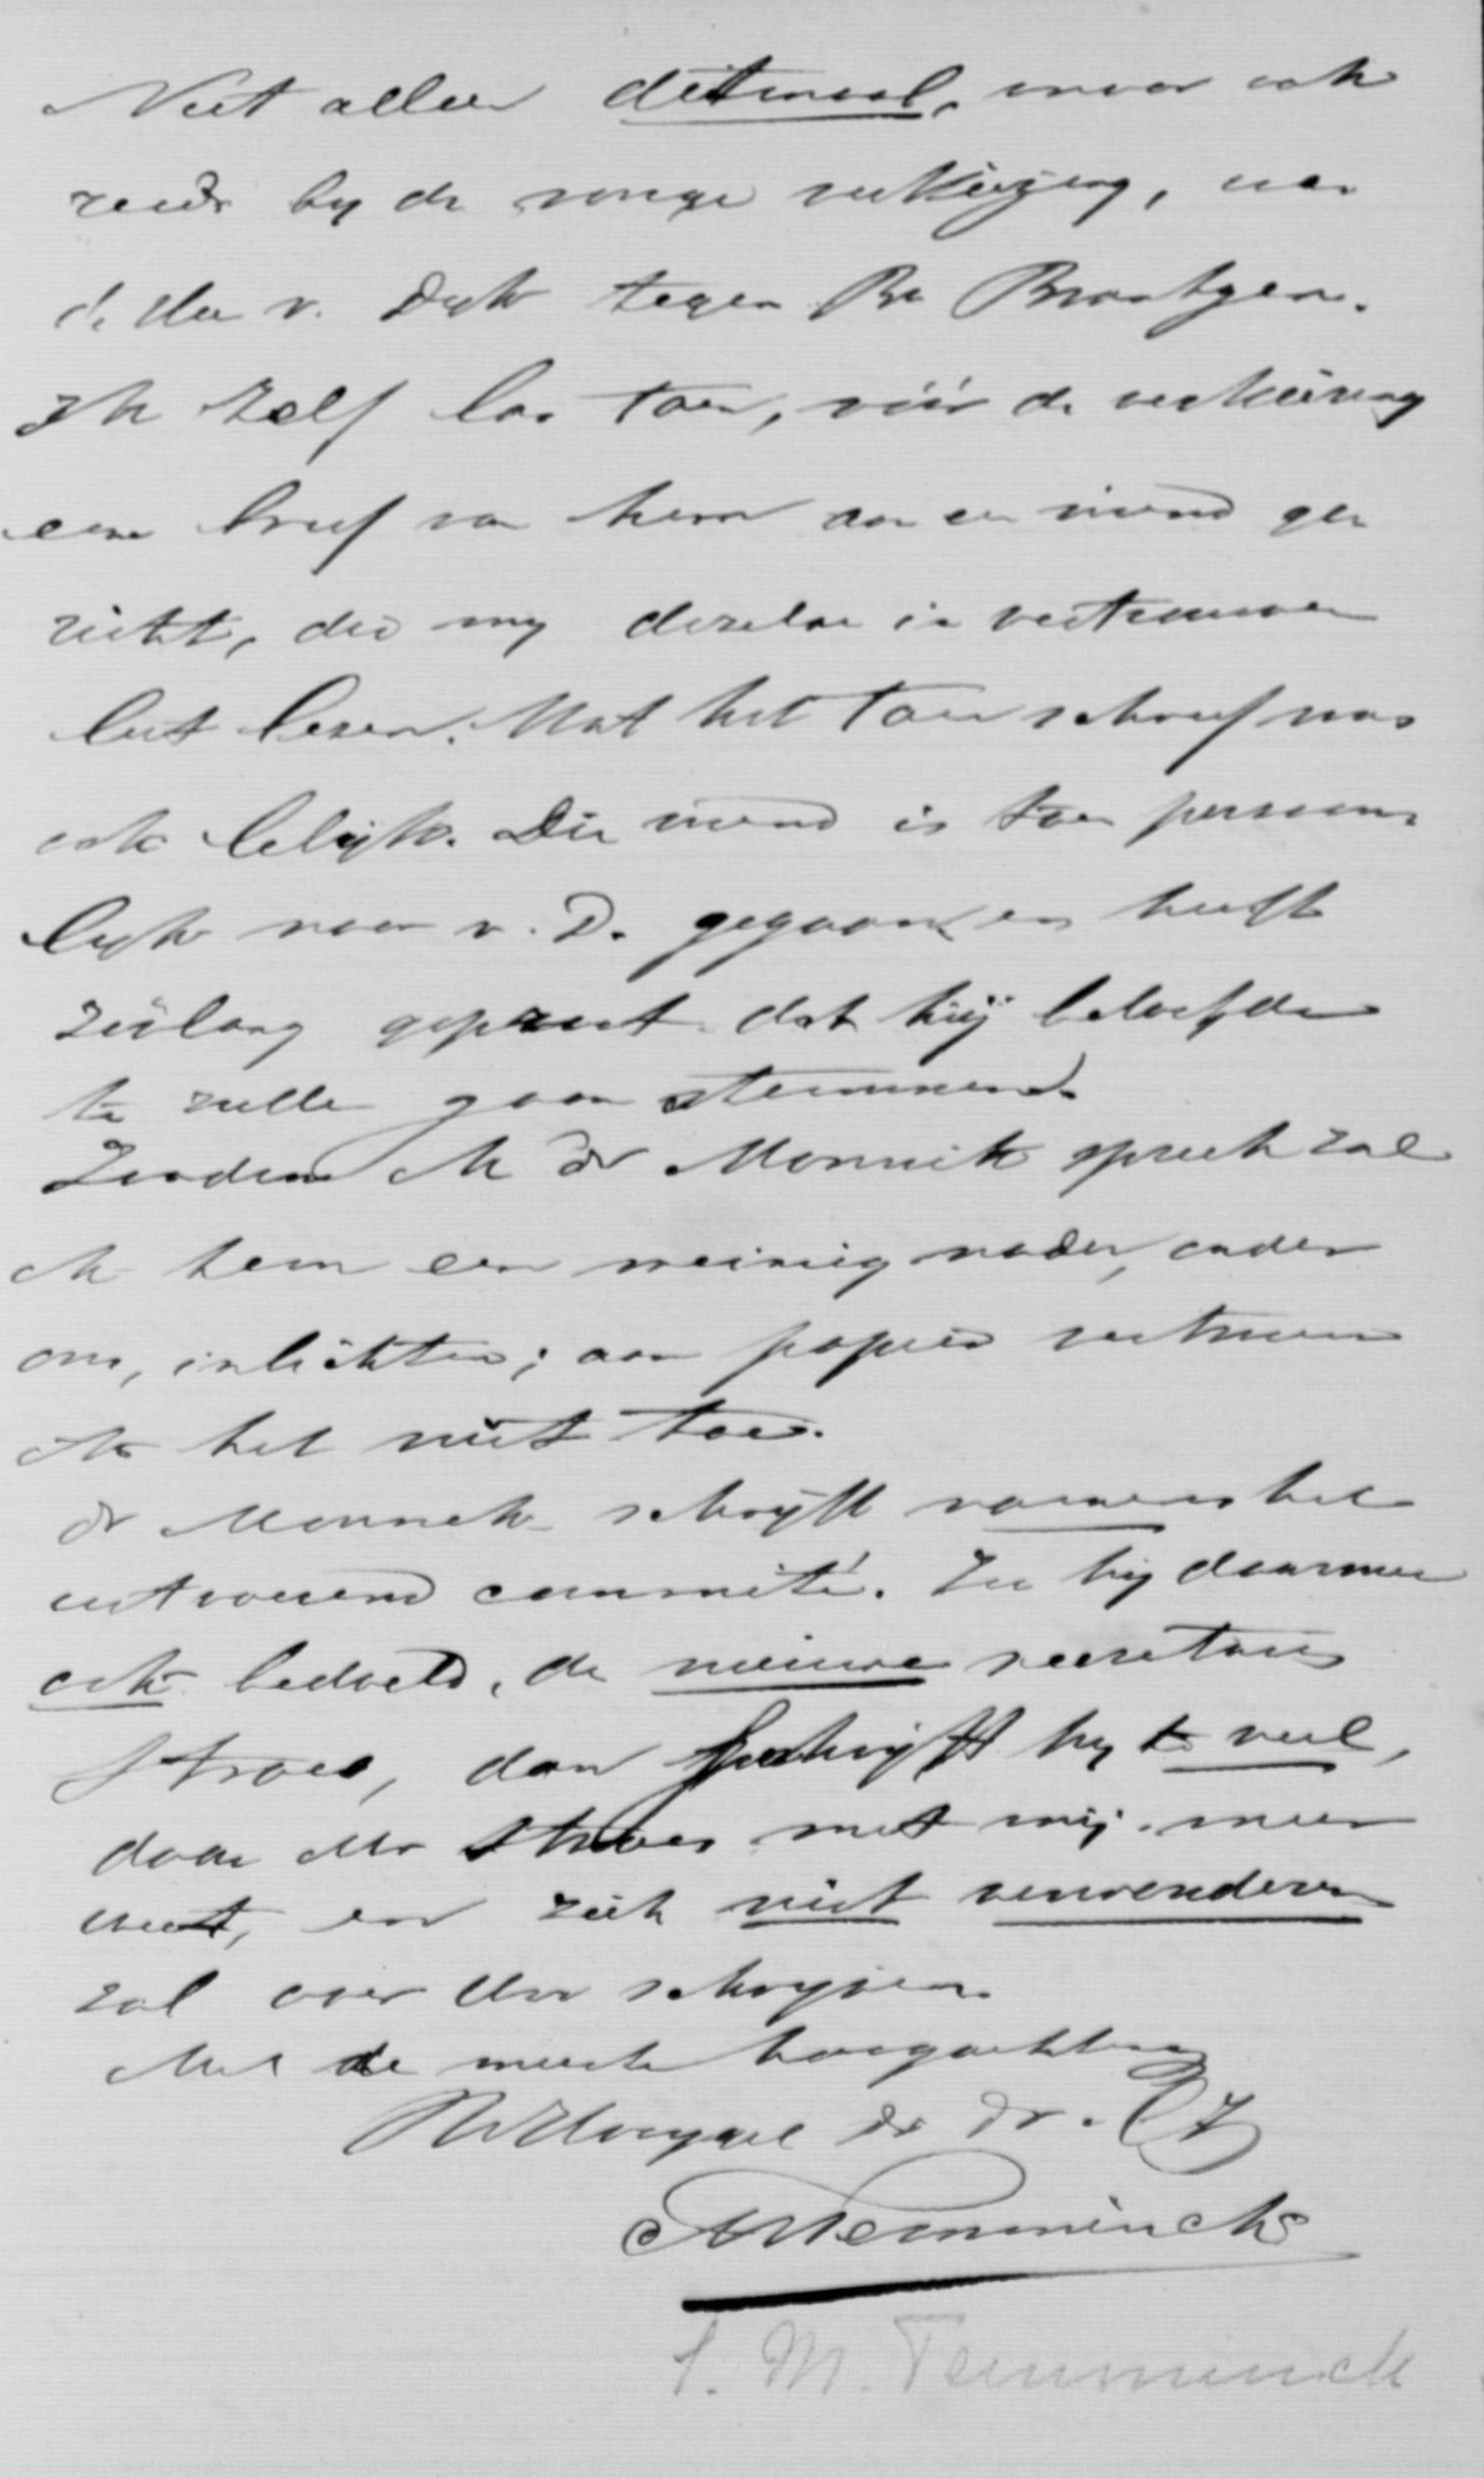 Niet alleen ditmaal, maar ook
reeds by de vorige verkiezing, was
de Heer v. Dyk tegen Br
Ik zelf las toen, vóór de verkiezing
een brief van hem aan een vriend ge
richt, die my dezelve in vertrouwen
liet lezen. Wat hij toen schreef was
ook lelijk. Die vriend is toen persoon
lyk naar v. D. gegaan en heeft
zóólang gepraat dat hij beloofde
te zullen gaan stemmen.
Zoodra ik dr Monnik spreek zal
ik hem een weinig nader, onder
ons, inlichten; aan papier vertrouw
ik het niet toe.
dr Monnik schrijft namens het
uitvoerend committé. Zoo hij daarmee
ook bedoeld, de nieuwe secretaris
Stroes, dan schrijft hy te veel,
daar Mr Stroes met mij meer
weet, en zich niet verwonderen
zal over Uw schryven.
Met de meeste hoogachting
UwEd dw dr.
Temminck
S. M. Temminck